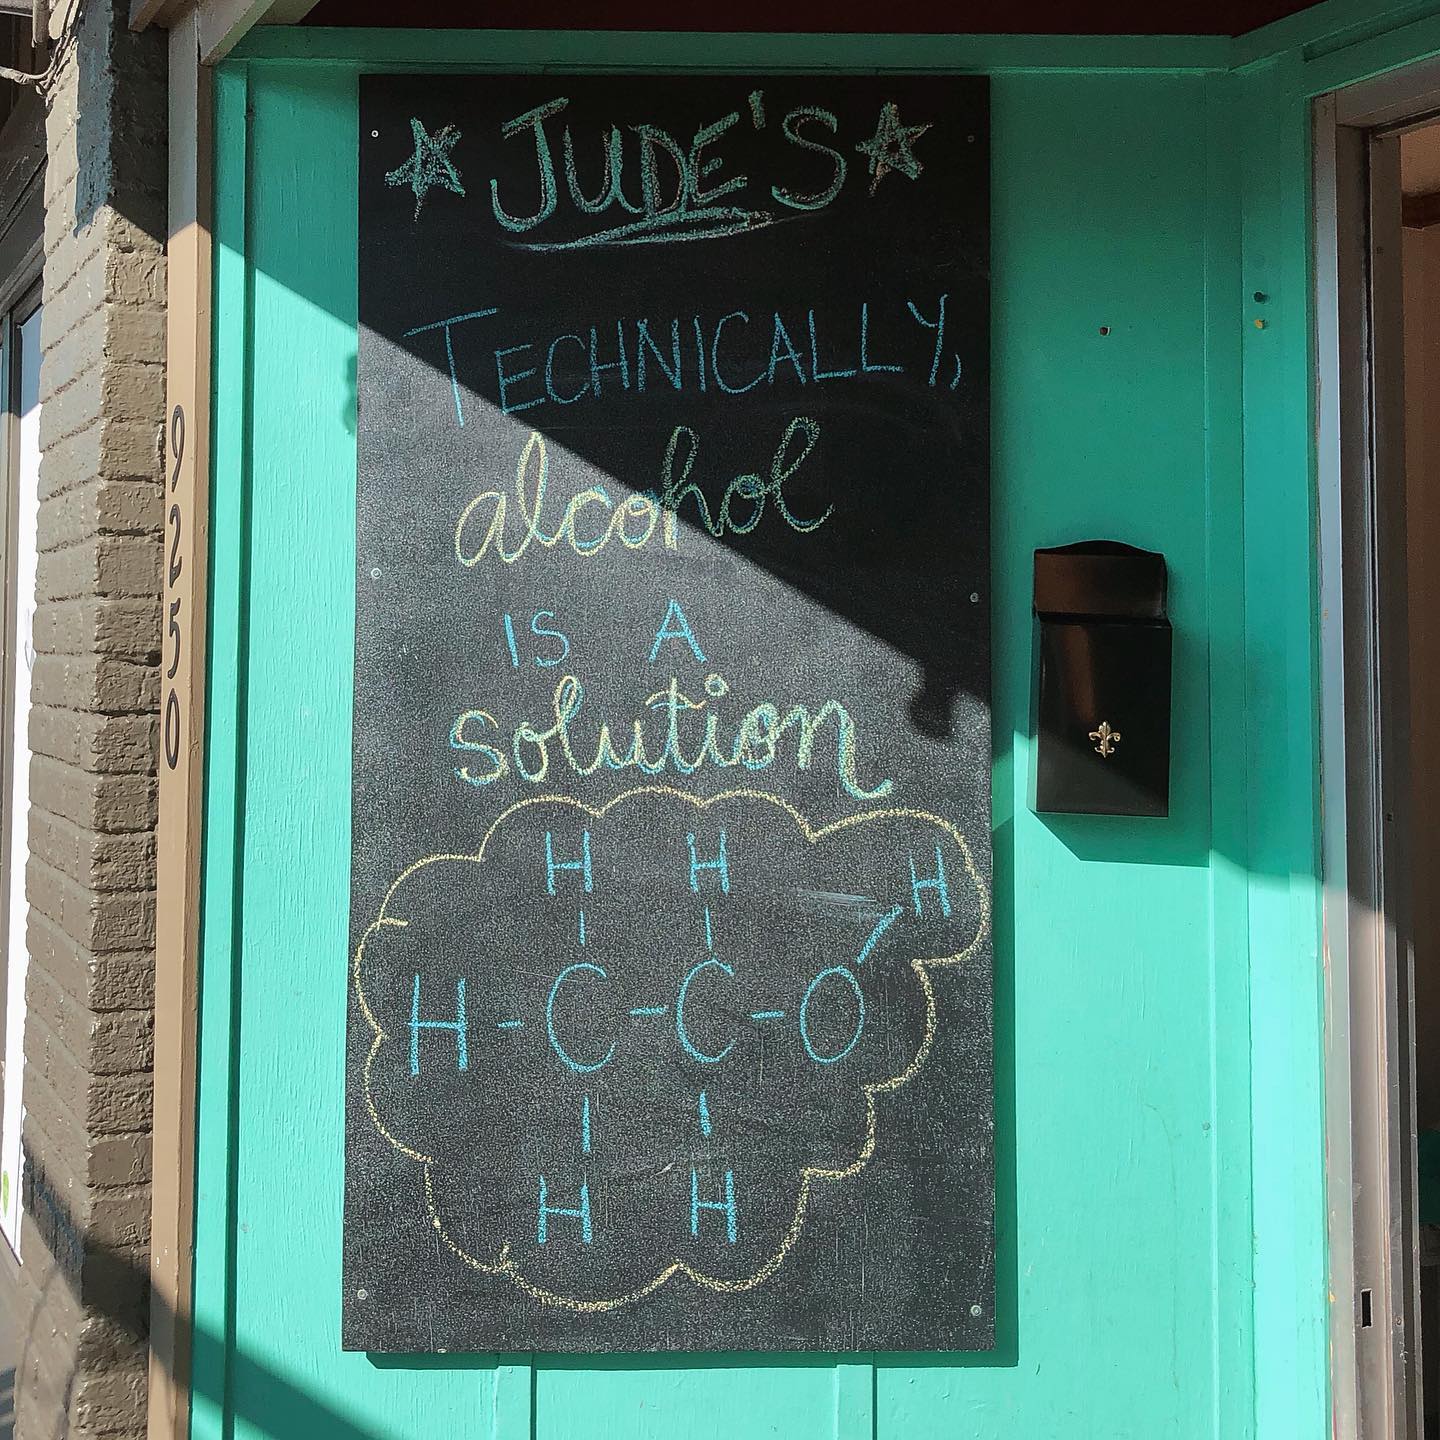 JUDE'S
TECHNICALLY,
alcohol
IS A
solution
H H H
H-C-C-O
H H
9250